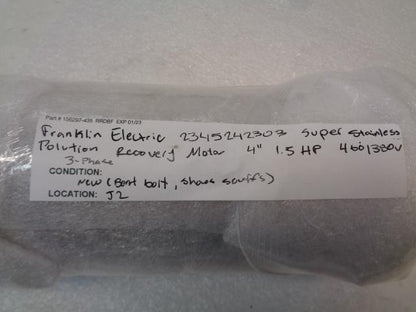 Part # 156297-435 RRDBF EXP 01/23
Franklin Electric 2345242303 Super Stainless
Polution Recovery Motor 4" 1.5 HP 460/380V
3-Phase
CONDITION:
New (Bent bolt, shows scuffs)
LOCATION: J2